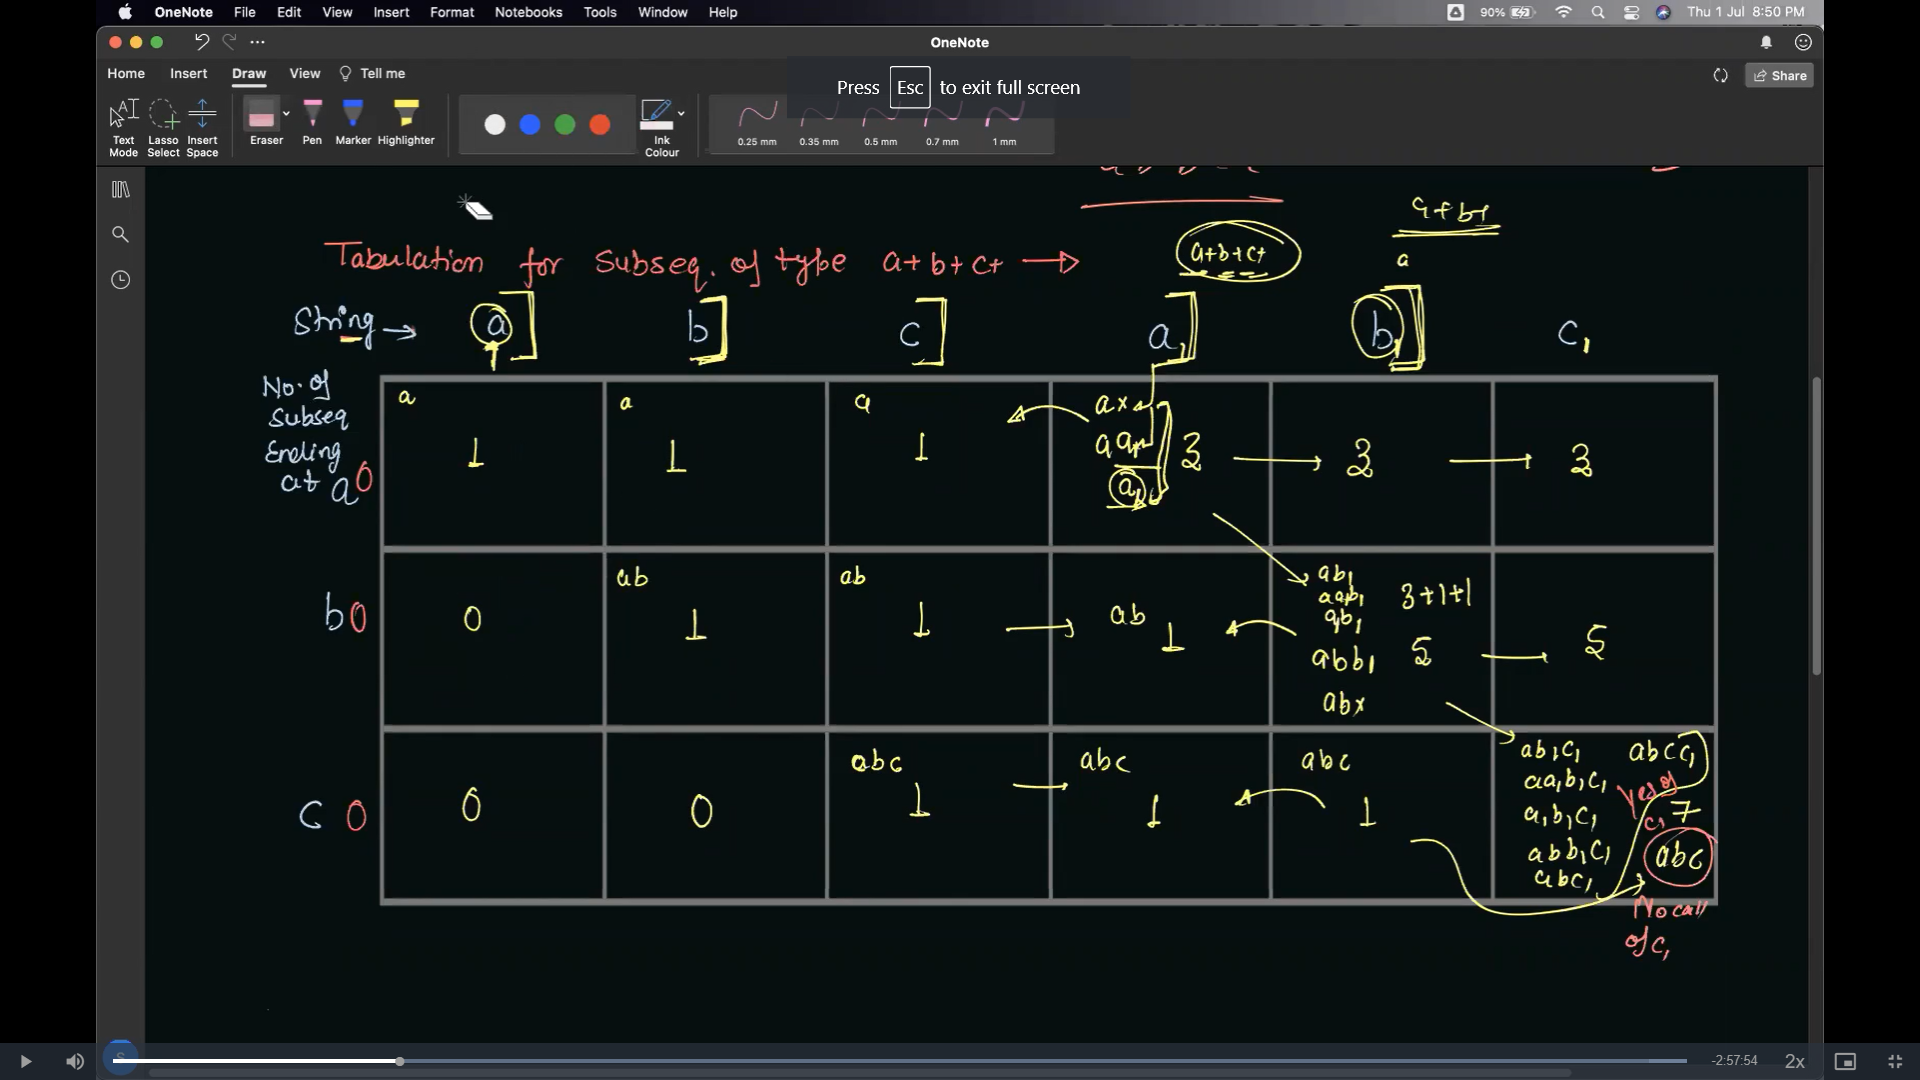 OneNote File Edit View Insert Format Notebooks Tools Window Help 90% Thu 1 Jul 8:50 PM
OneNote
Home Insert Draw View Tell me Share
Press Esc to exit full screen
Text Mode Lasso Select Insert Space Eraser Pen Marker Highlighter Ink Colour 0.25 mm 0.35 mm 0.5 mm 0.7 mm 1 mm
a+b+
Tabulation for Subseq. of type a+b+c+ → a+b+c+ a
String → a b c a₁ b₁ c₁
No. of Subseq Ending at a 0
a 1
a 1
a 1
ax
aa₁
a₁
3 → 3 → 3
b 0
0
ab 1
ab 1 →
ab 1
ab₁
aa₁b₁
a₁b₁
abb₁
abx
3+1+1
5 → 5
c 0
0
0
abc 1 →
abc 1
abc 1
ab₁c₁
aa₁b₁c₁
a₁b₁c₁
abb₁c₁
abc₁
abcc₁
yes of c₁
7
abc
No call of c₁
-2:57:54 2x